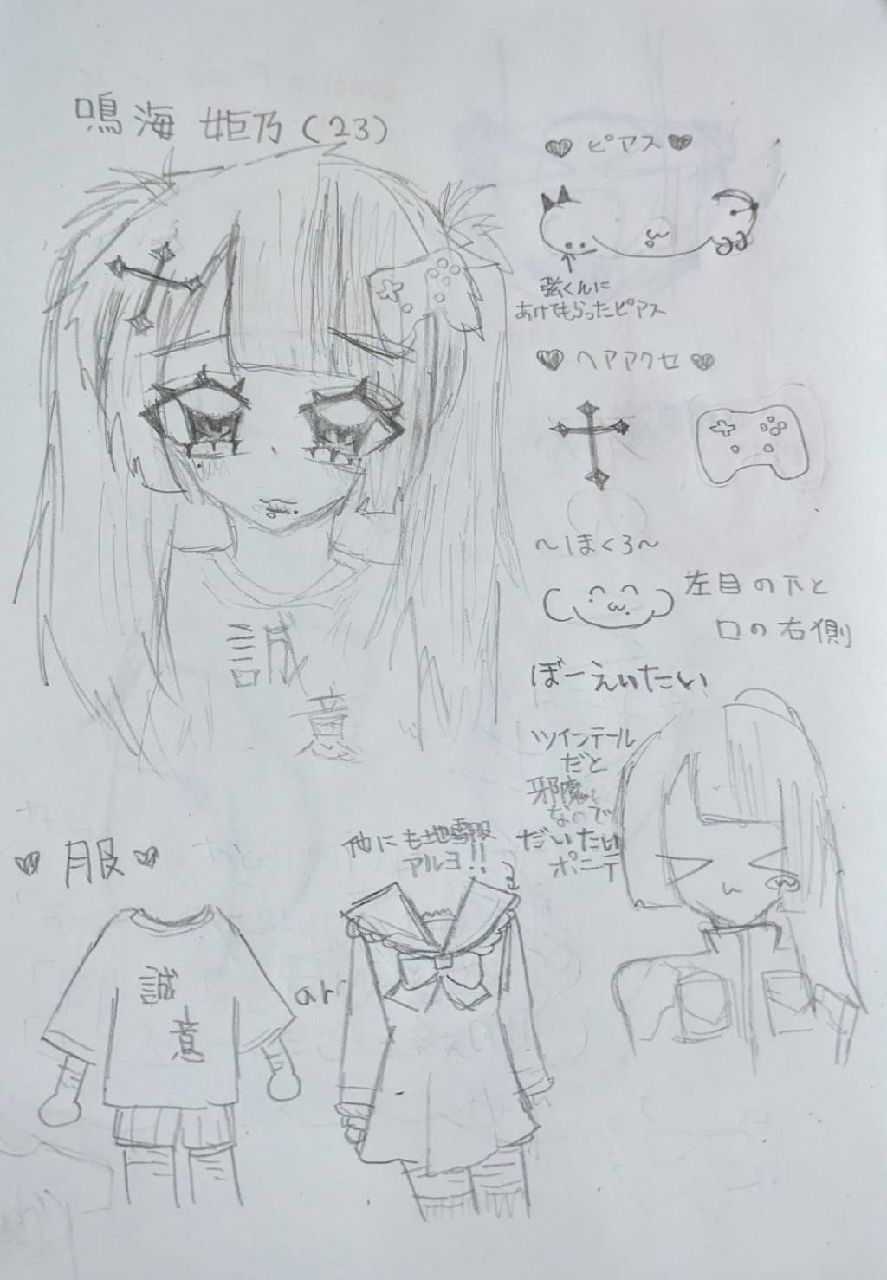 鳴海 姫乃(23)
ピアス
弦くんに
あけてもらったピアス
ヘアアクセ
〜ほくろ〜
左目の下と
口の右側
誠
意
ぼーえいたい
ツインテール
だと
邪魔
なので
だいたい
ポニテ
服
他にも地雷服
アルヨ!!
誠
意
or